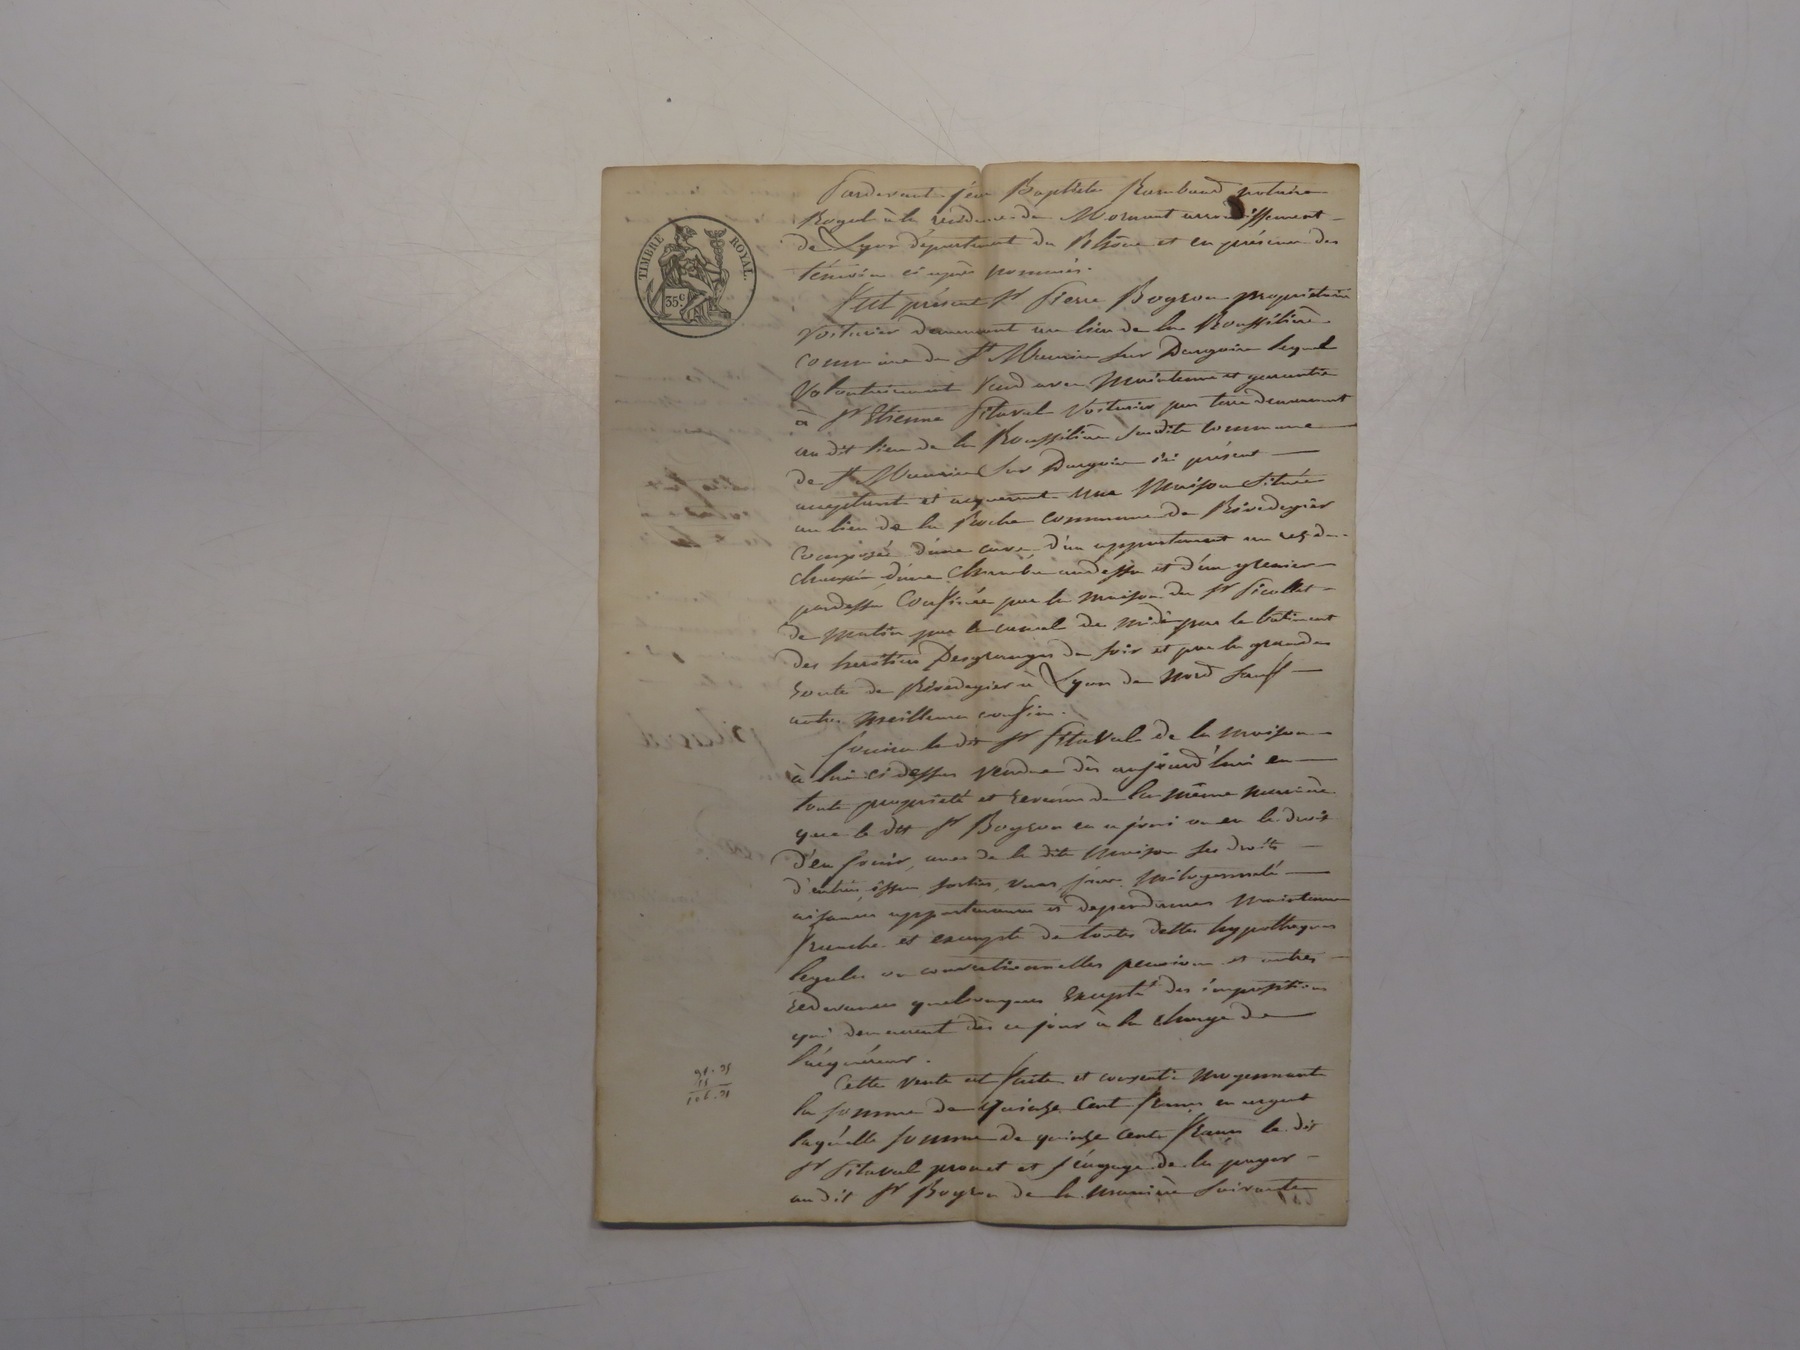 TIMBRE ROYAL.
35c
Pardevant Jean Baptiste Rambaud notaire
Royal à la résidence de Mornant arrondissement
de Lyon département du Rhône et en présence des
témoins ci après nommés.
Fut présent Sr Pierre Boyron propriétaire
voiturier demeurant au lieu de la Roussilière
commune de St Maurice sur Dargoire lequel
volontairement vend avec maintenue et garantie
à Sr Etienne Pitaval voiturier par terre demeurant
au dit lieu de la Roussilière susdite commune
de St Maurice sur Dargoire ici présent
acceptant et acquerant une maison située
au lieu de la Roche commune de Rivedegier
composée d'une cave d'un appartement au rez de
chaussée d'une chambre au dessus et d'un grenier
par dessus confinée par la maison du Sr Picollet
de matin par le canal de midi par le bâtiment
des héritiers Desgranges de soir et par la grande
route de Rivedegier à Lyon de nord sauf
autres meilleurs confins.
Jouira le dit Sr Pitaval de la maison
à lui ci dessus vendue dès aujourd'hui en
toute propriété et revenu de la même manière
que le dit Sr Boyron en a joui ou eu le droit
d'en jouir, avec de la dite maison ses droits
d'entrée issue sorties, vues, jours mitoyenneté
aisances appartenances et dependances maintenue
franche et exempte de toutes dettes hypothèques
legales ou conventionnelles pensions et autres
redevances quelconques excepté des impositions
qui demeurent dès ce jour à la charge de
l'acquéreur.
Cette vente est faite et consentie moyennant
la somme de quinze cent francs en argent
laquelle somme de quinze cent francs le dit
Sr Pitaval promet et s'engage de la payer
au dit Sr Boyron de la manière suivante